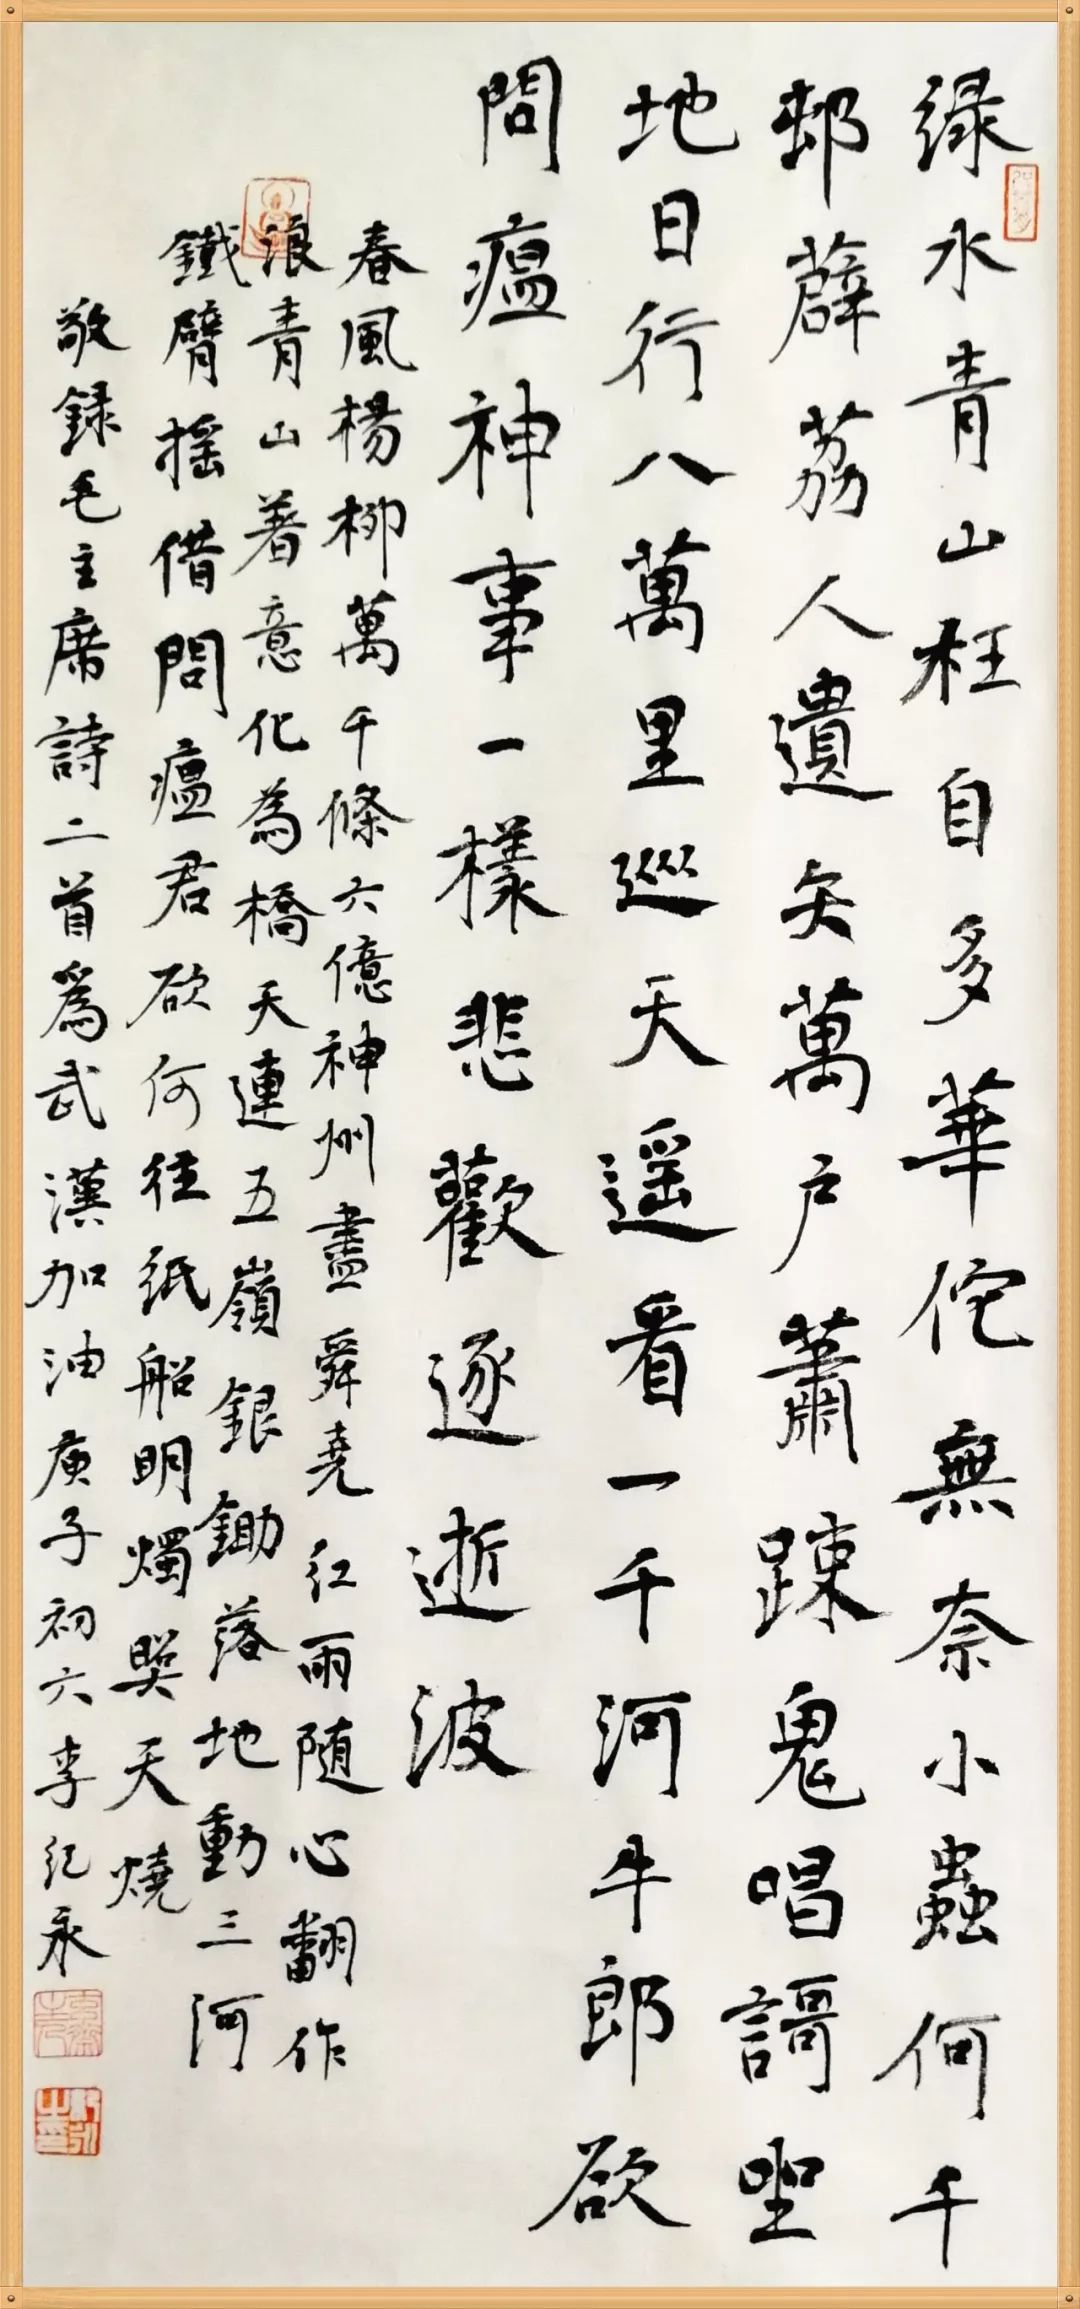 緑水青山枉自多華佗無奈小蟲何千
邨薜荔人遺矢萬戶蕭踈鬼唱謌聖
地日行八萬里巡天遥看一千河牛郎欲
問瘟神事一樣悲歡逐逝波
春風楊柳萬千條六億神州盡舜堯紅雨随心翻作
浪青山着意化為橋天連五嶺銀鋤落地動三河
鐵臂摇借問瘟君欲何往紙船明燭照天燒
敬録毛主席詩二首爲武漢加油庚子初六李纪永